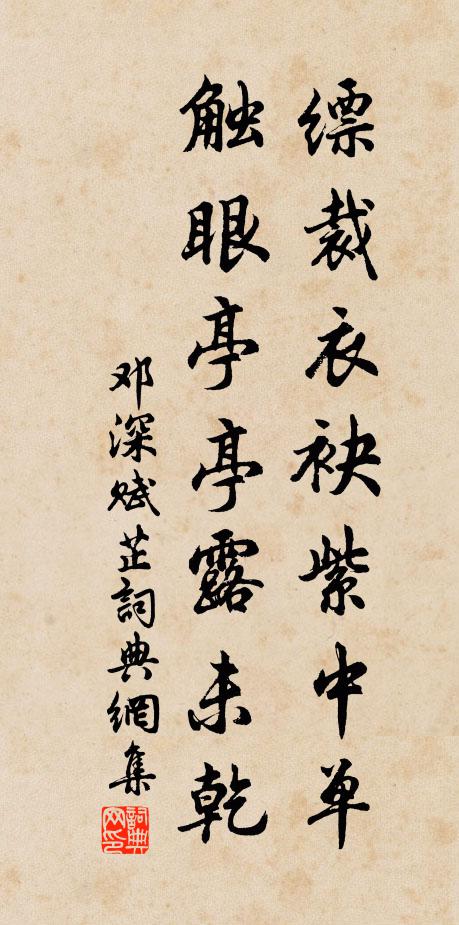 缥裁衣袂紫中单
触眼亭亭露未乾
邓深赋芷詞典網集
詞典
网印